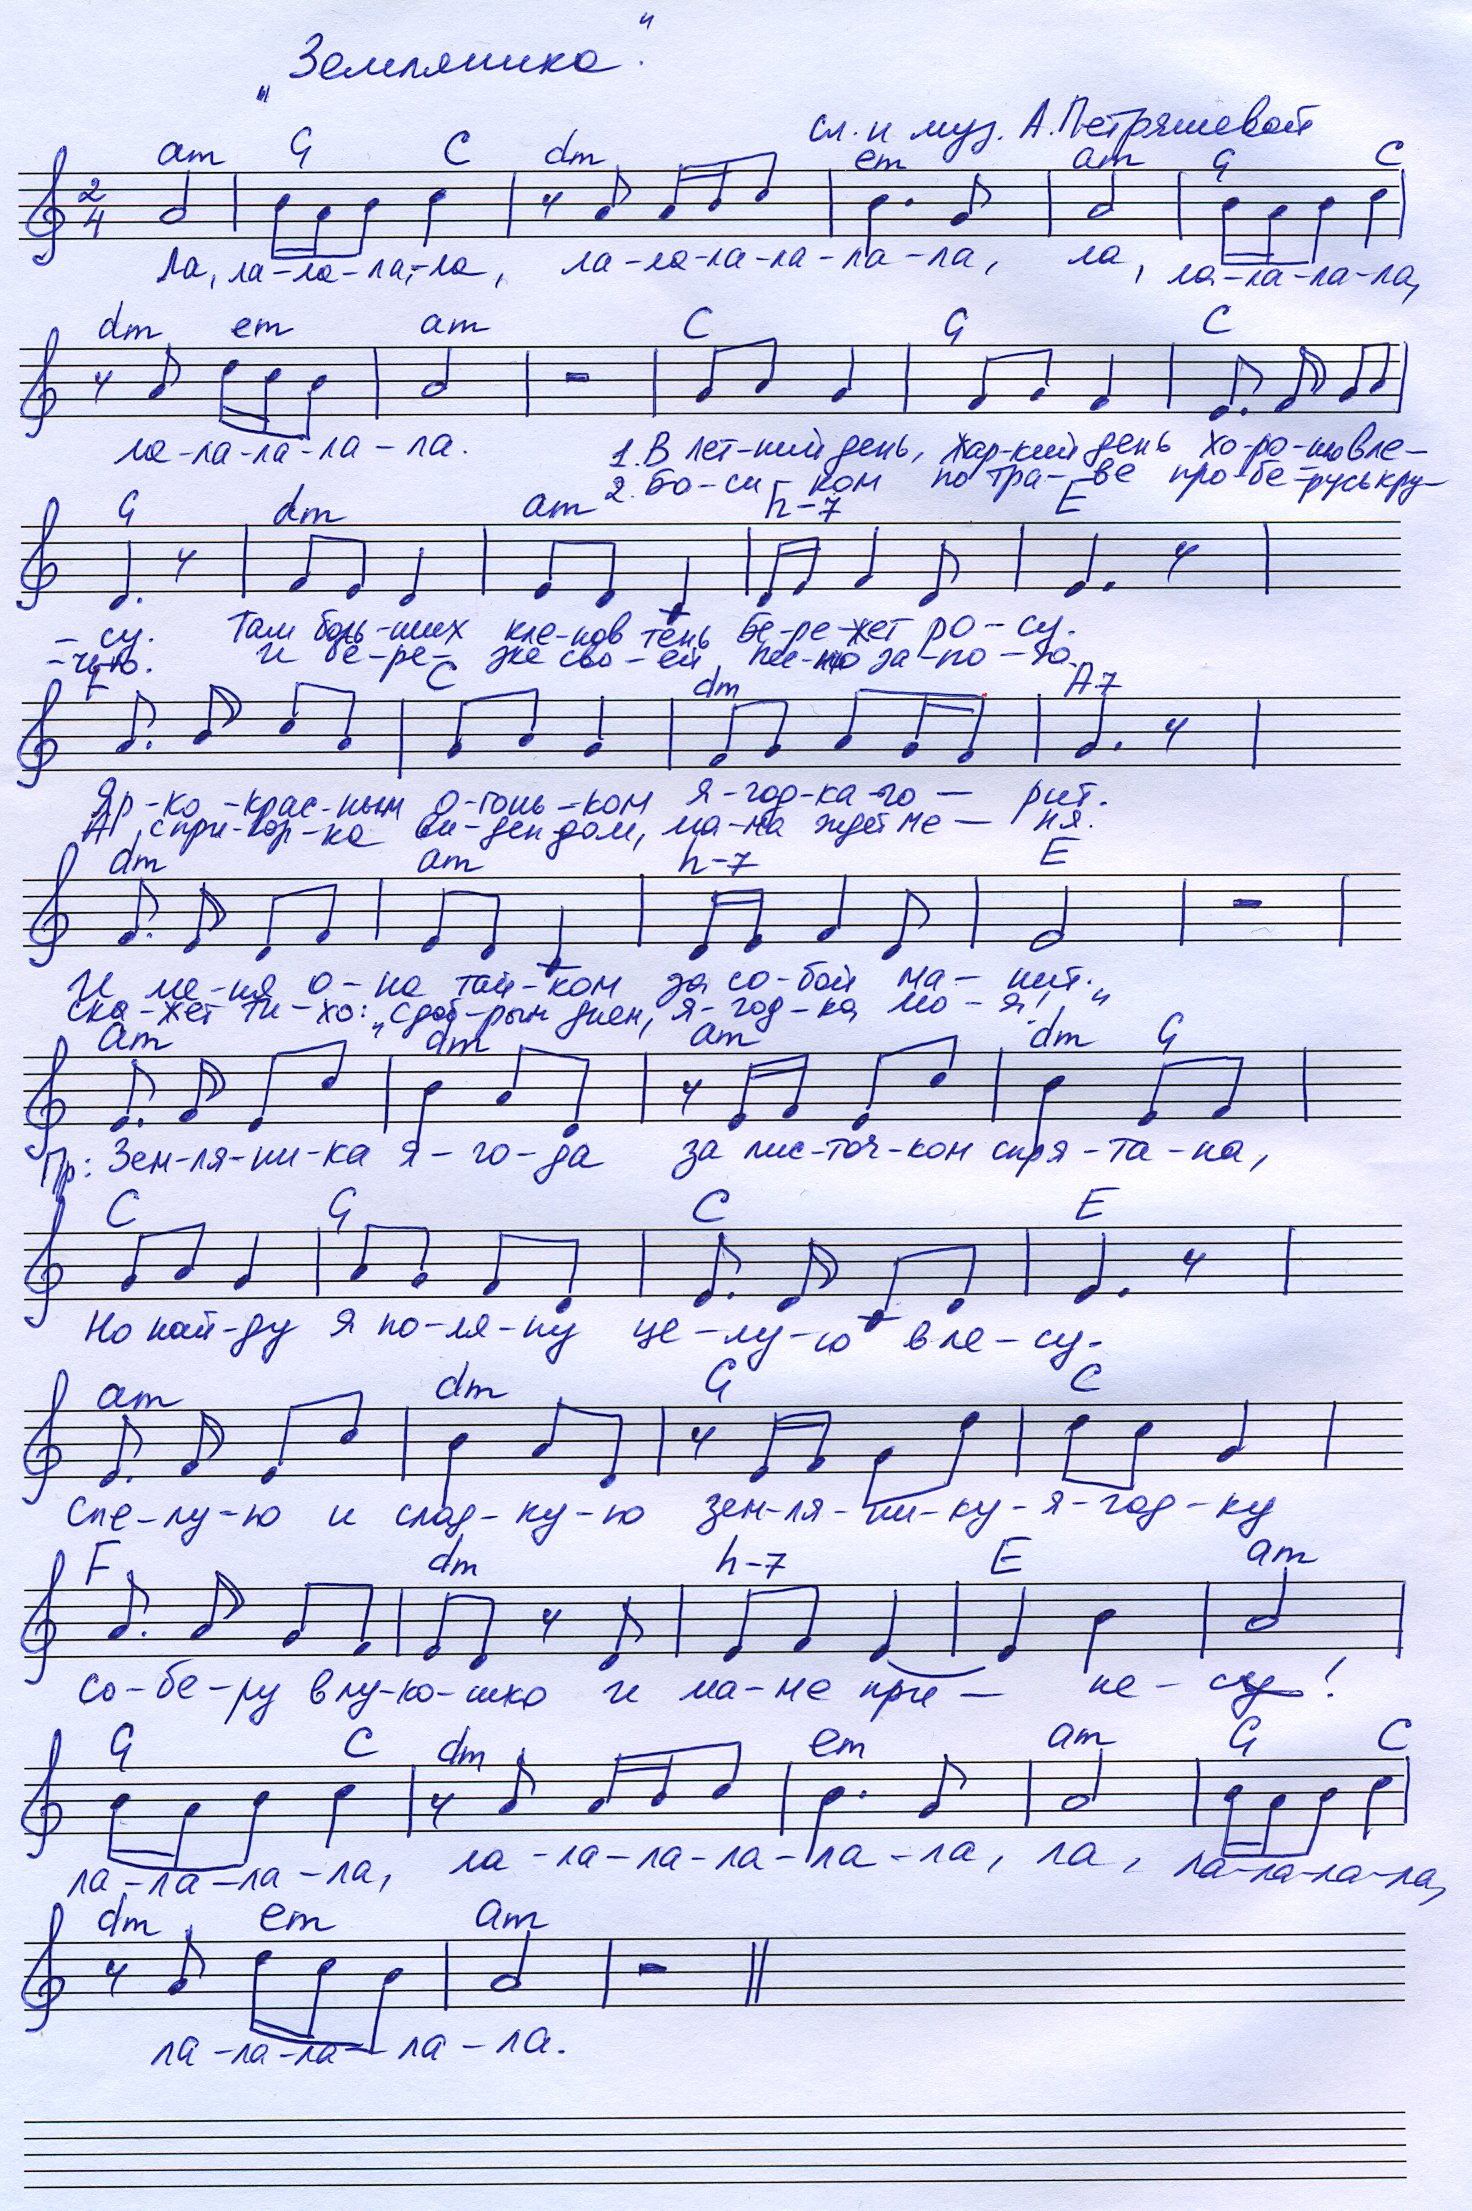 „Земляника"
сл. и муз. А.Петряшевой
am G C dm em am G C
2
4
Ла, ла-ла-ла,-ла, ла-ла-ла-ла-ла-ла, ла, ла-ла-ла-ла,
dm em am C G C
ла-ла-ла-ла-ла.
1. В лет-ний день, жар-кий день хо-ро-шо в ле-
2. Бо-си-ком по тра-ве про-бе-русь кру-
G dm am h-7 E
-су. Там боль-ших кле-нов тень бе-ре-жет ро-су.
-чую. И бе-ре-зке сво-ей пес-ню за-по-ю.
F C dm A7
Яр-ко-крас-ным о-гонь-ком я-год-ка го-рит.
А с при-гор-ка ви-ден дом, ма-ма ждет ме-ня.
dm am h-7 E
И ме-ня о-на тай-ком за со-бой ма-нит.
ска-жет ти-хо: „С доб-рым днем, я-год-ка мо-я!"
am dm am dm G
Пр: Зем-ля-ни-ка я-го-да за лис-точ-ком спря-та-на,
C G C E
Но най-ду я по-ля-ну це-лу-ю в ле-су.
am dm G C
Спе-лу-ю и слад-ку-ю зем-ля-ни-ку-я-год-ку
F dm h-7 E am
со-бе-ру в лу-ко-шко и ма-ме при-не-су!
G C dm em am G C
ла-ла-ла-ла, ла-ла-ла-ла-ла-ла, ла, ла-ла-ла-ла,
dm em am
ла-ла-ла-ла-ла.